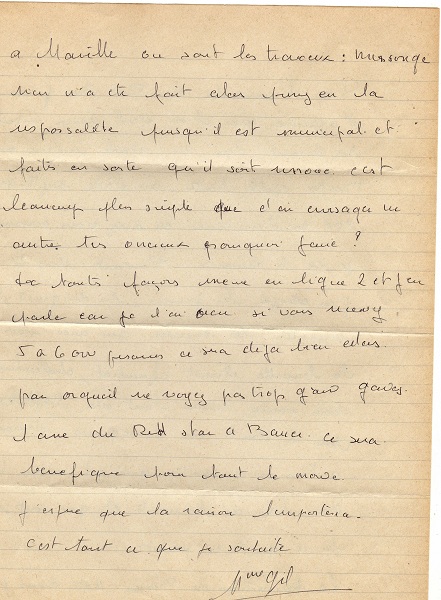 a Marville ou sont les travaux : mensonge
rien n'a été fait alors prenez en la
responsabilité puisqu'il est municipal. et
faites en sorte qu'il soit rénové c'est
beaucoup plus simple que d'en envisager un
autre très onéreux pourquoi faire ?
De toutes façons même en ligne 2 et j'en
parle car je l'ai vécu si vous recevez
5 à 6 000 personnes ce sera déjà bien alors.
par orgueil ne voyez pas trop grand gardez
l'ame du Red star a Bauer ce sera
bénéfique pour tout le monde.
J'espère que la raison l'emportera.
c'est tout ce que je souhaite
Mme Gil